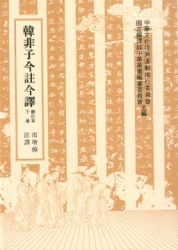 中華文化復興運動推行委員會
國立編譯館中華叢書編審委員會
主編
韓非子今註今譯
修訂本
下冊
邵增樺
註譯